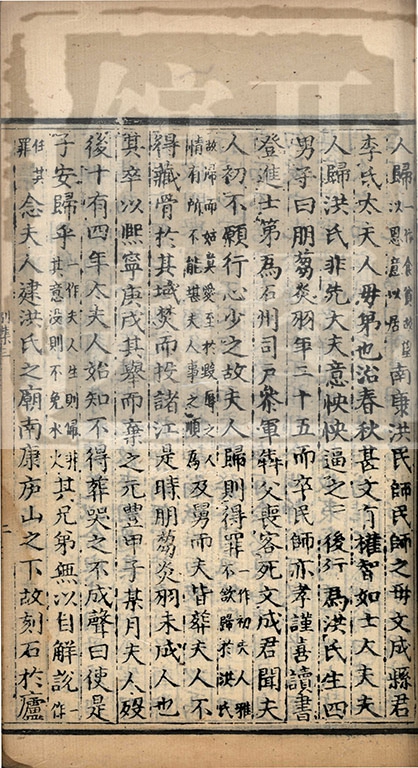 人歸南康洪民師民師之毋文成縣君
李氏大夫人毋弟也治春秋甚文有權智如士大夫夫
人歸洪氏非先大夫意怏怏逼之後行為洪氏生四
男子曰朋芻炎羽年二十五而卒民師亦孝謹喜讀書
登進士第為石州司戶參軍犇父喪客死文成君聞夫
人初不願行心少之故夫人歸則得罪一作初夫人雅不欲歸於洪氏
故歸而姑莫愛至於毀辱之人情有所不能堪夫人事之順焉及舅而夫皆葬夫人不
得藏骨於其域焚而投諸江是時朋芻炎羽未成人也
其卒以熙寧庚戌其舉而棄之元豐甲子某月夫人歿
後十有四年太夫人始知不得葬哭之不成聲曰使是
子安歸乎一作夫人生則歸非其意没則不免水火其兄弟無以自解說一作
任其罪念夫人建洪氏之廟南康庐山之下故刻石於廬